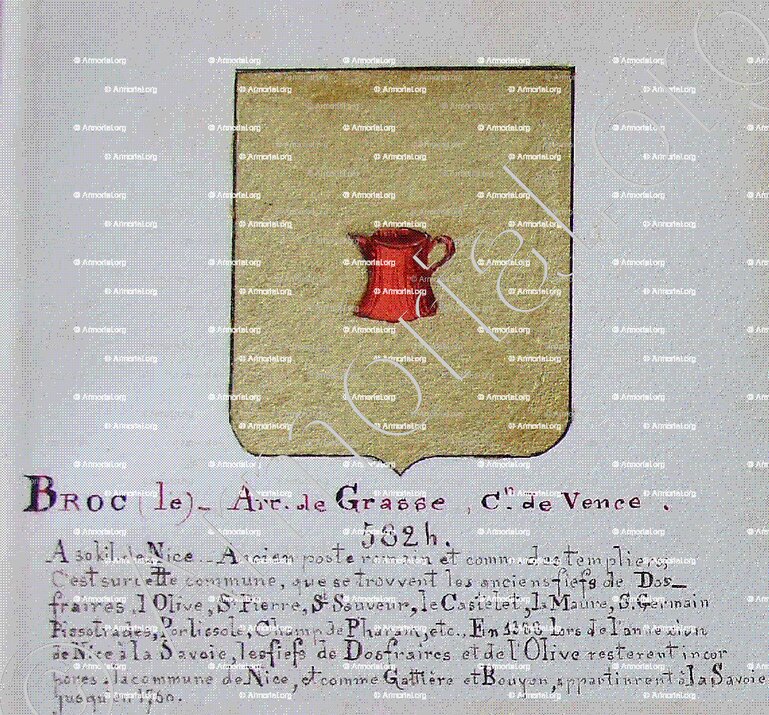 BROC (le) - Arr. de Grasse, Cⁿ. de Vence.
582 h.
A 30 kil. de Nice. - Ancien poste romain et comm. des templiers
C'est sur cette commune, que se trouvent les anciens fiefs de Dos-
fraires, l'Olive, St Pierre, St Sauveur, le Castelet, la Maure, S. Germain
Pissotrades, Porlissole, Champ de Pharan, etc., En 1388 lors de l'annexion
de Nice à la Savoie, les fiefs de Dosfraires et de l'Olive resterent incor
pores à la commune de Nice, et comme Gattère et Bouyon, appartinrent à la Savoie
jusqu'en 1760.